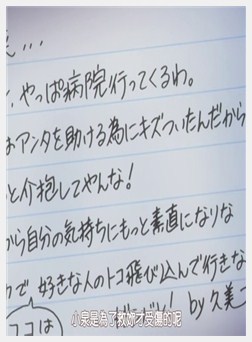 …
やっぱ病院行ってくるわ。
アンタを助ける為にキズついたんだから
と介抱してやんな!
から自分の気持ちにもっと素直になりな
で 好きな人のトコ飛び込んで行きな
ココは
by久美
小泉是為了救妳才受傷的呢